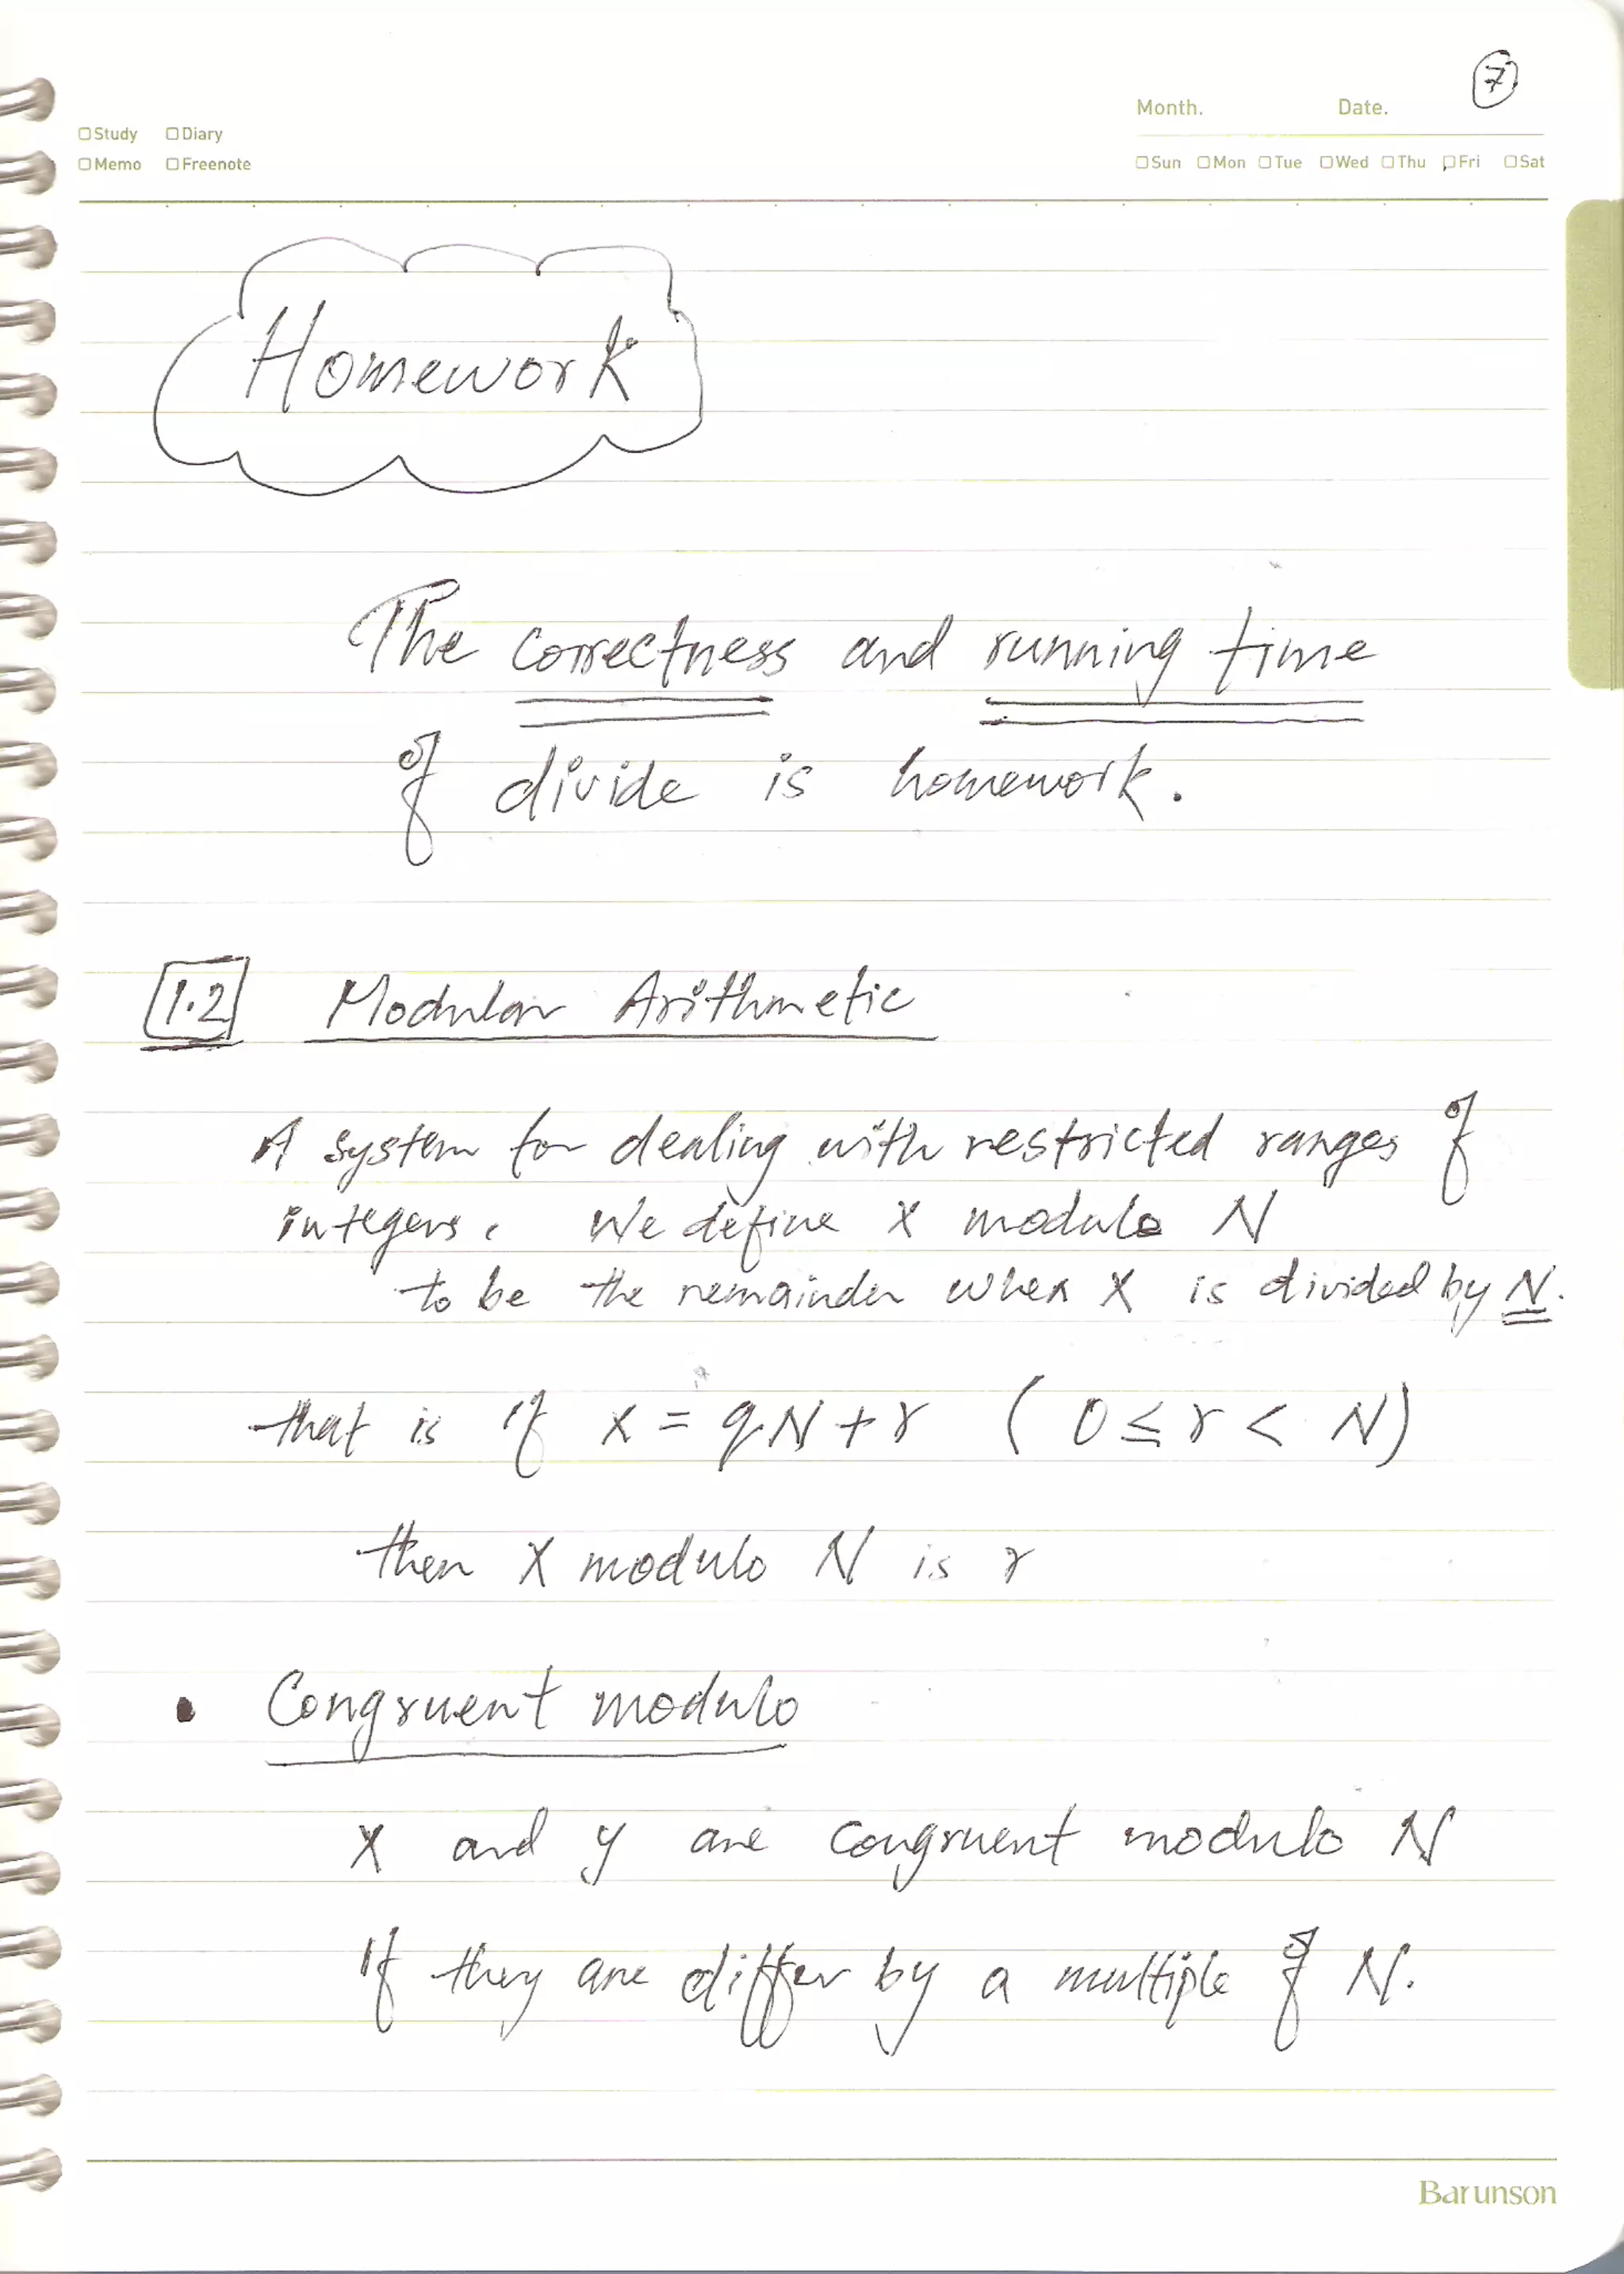 7
Month. Date.
Study Diary
Memo Freenote
Sun Mon Tue Wed Thu Fri Sat
Homework
The correctness and running time
of divide is homework.
1.2 Modular Arithmetic
A system for dealing with restricted ranges of
integers. We define X modulo N
to be the remainder when X is divided by N.
that is if x = qN + r ( 0 ≤ r < N)
then X modulo N is r
• Congruent modulo
X and y are congruent modulo N
If they are differ by a multiple of N.
Barunson